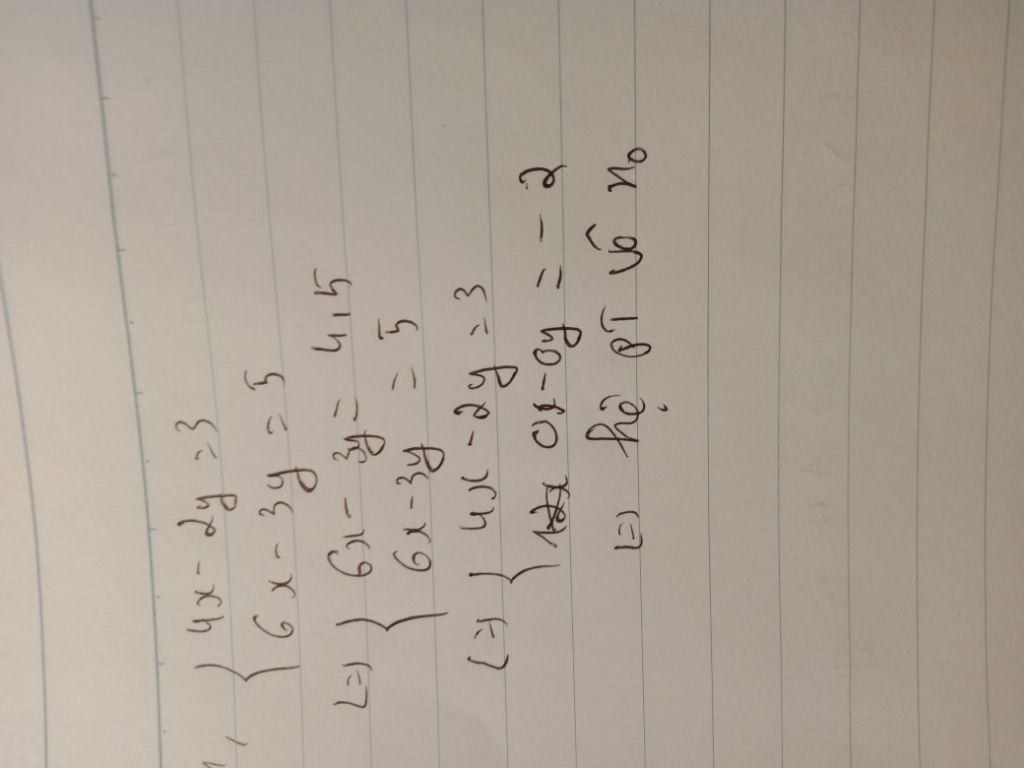 { 4x - 2y = 3
6x - 3y = 5
<=> { 6x - 3y = 4,5
6x - 3y = 5
<=> { 4x - 2y = 3
0x - 0y = - 2
<=> hệ PT vô no